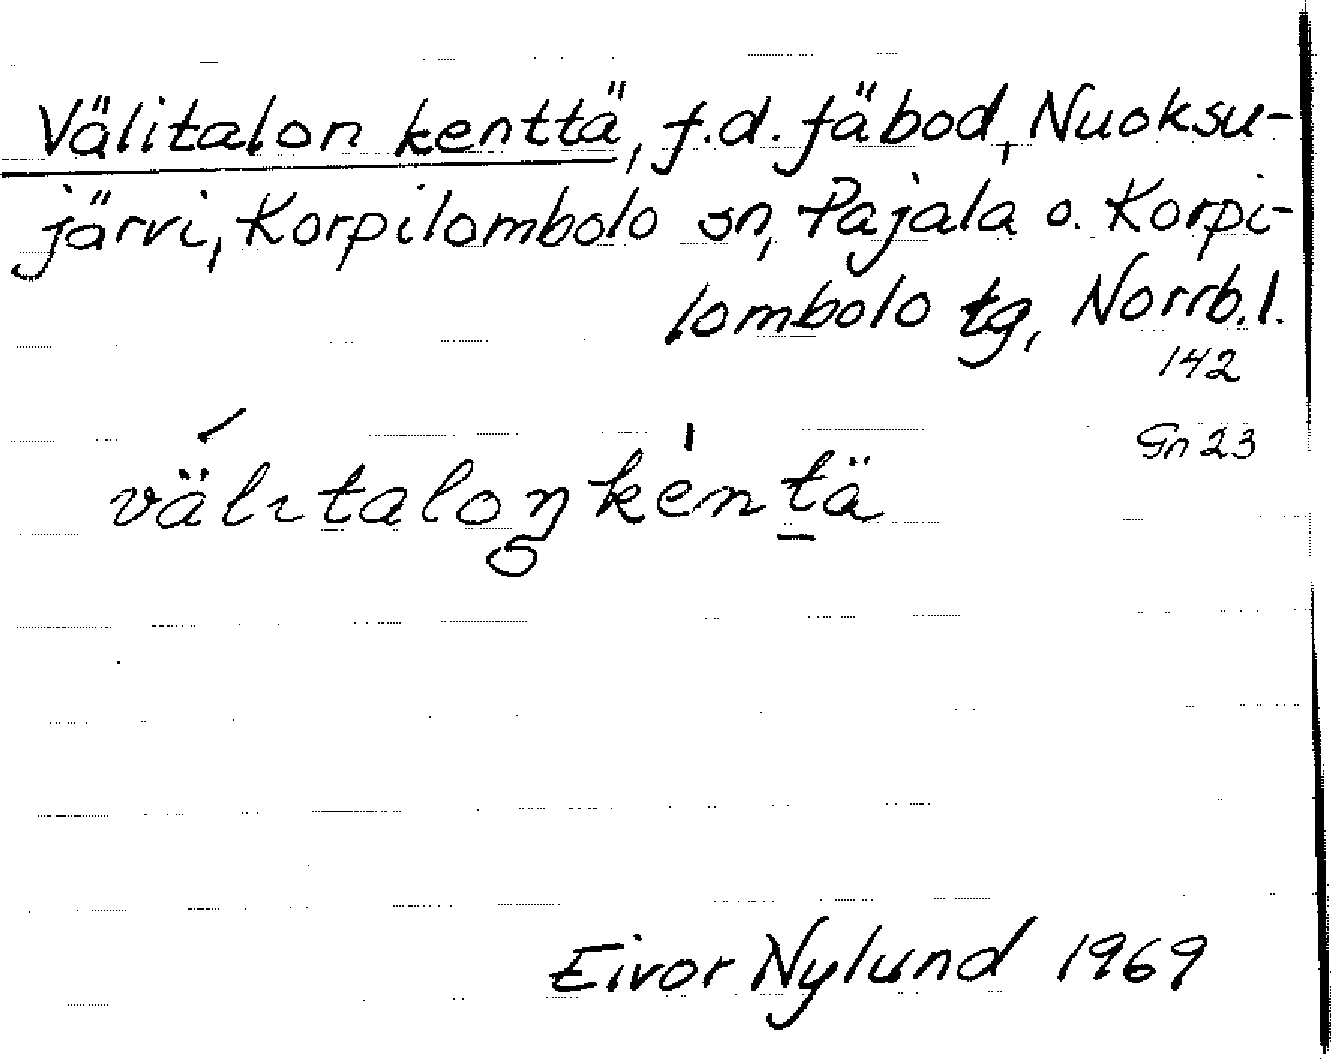 Välitalon kenttä, f.d. fäbod, Nuoksu-
järvi, Korpilombolo sn, Pajala o. Korpi-
lombolo tg, Norrb.l.
142
Gn 23
välɩtaloŋkentä
Eivor Nylund 1969